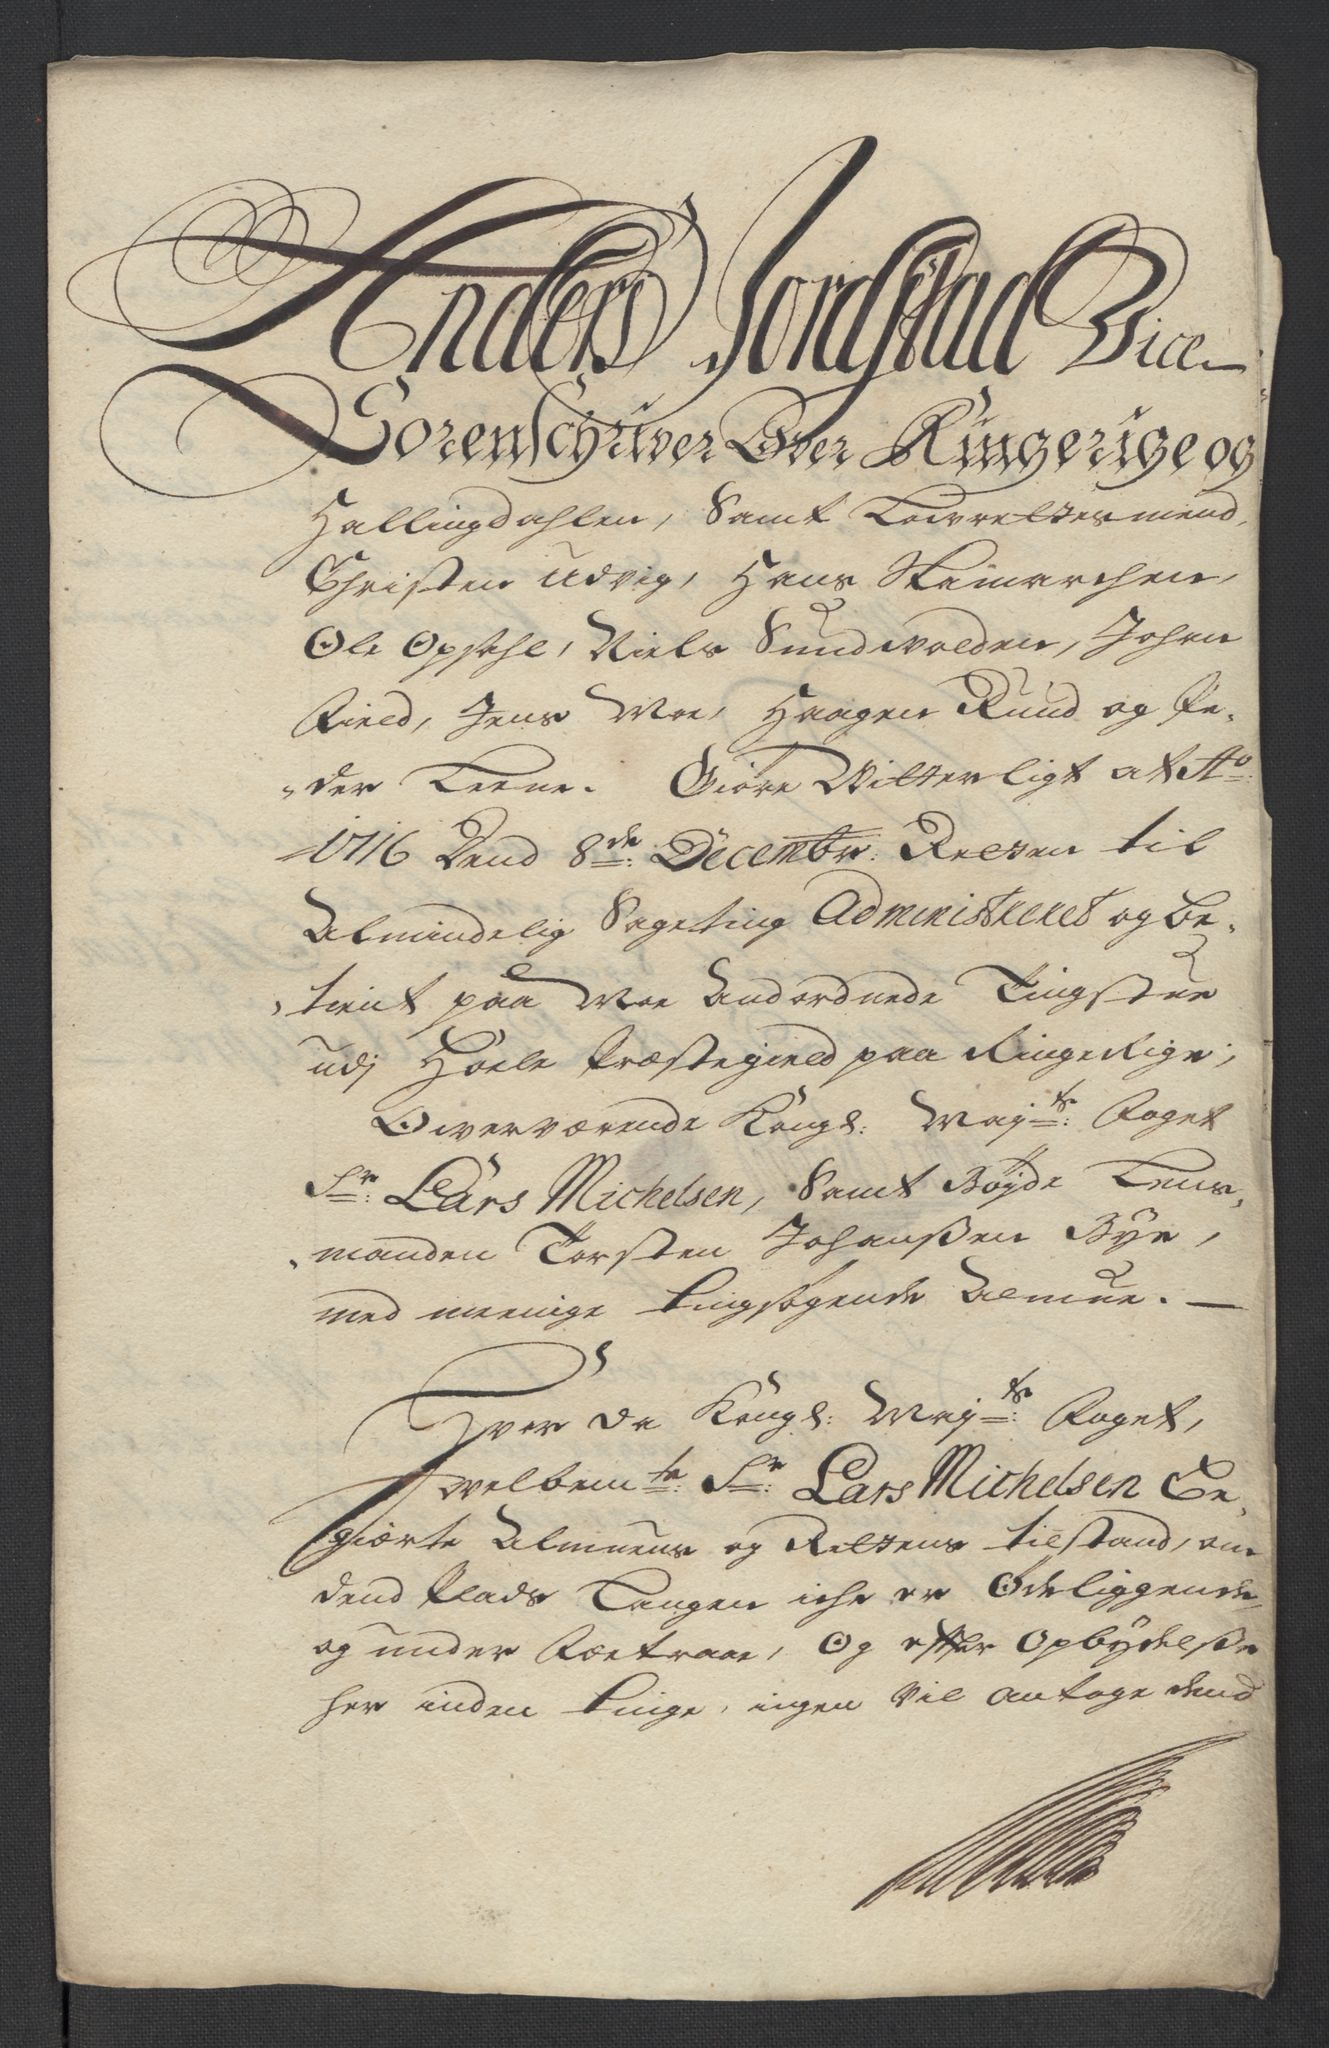 Anders Jordstad Vice
Sorenschriver Over Ringerige og
Hallingdahlen, Samt Lavrettesmend,
Christen Udvig, Hans Stamarchen,
Ole Opsahl, Niels Sundvolden, Johan
Field, Jens Moe, Haagen Rund og Pe-
der Leene. Giöre Vitterligt at Ao:
1716 Dend 8de: Decembr: Retten til
Almindelig Sageting Administreret og be-
tient paa Moe Andordnede Tingstue
udj Hoele Præstegield paa Ringerige;
Owerværende Kongl: Mayts: Foget
Sr: Lars Michelsen, Samt Böyde Lens-
manden Torsten Johanßen Bye,
med meenige tingsögende Almue. —
Hvor da Kongl: Mayts: Foget,
welbemte: Sr: Lars Michelsen Be-
giærte Almuens og Rettens tilstand, om
dend Plads Tangen iche er Ödeliggende
og under Foetraae, Og effter Opbydelße
her inden tinge, ingen vil antage dend